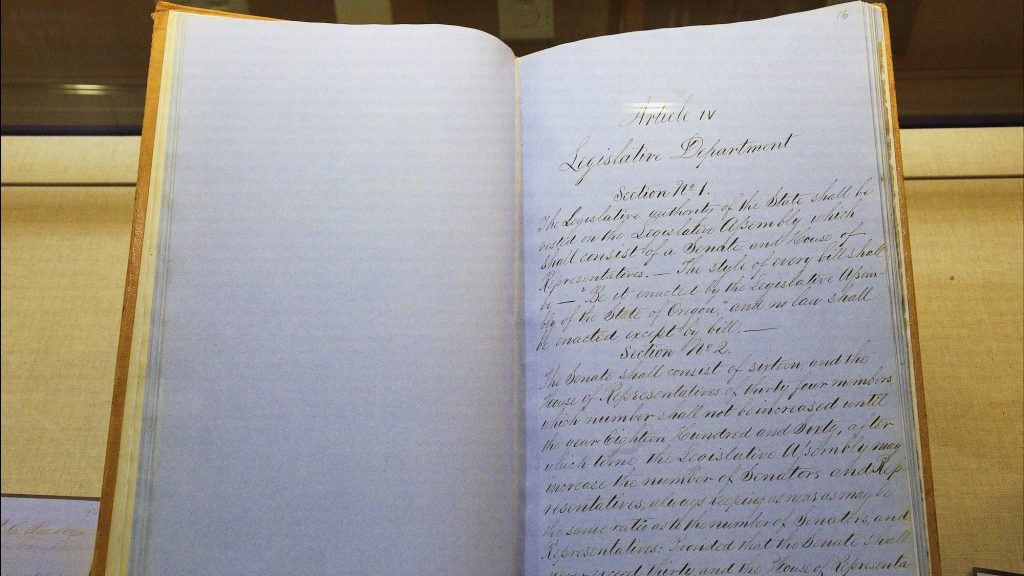 16
Article IV
Legislative Department
Section No 1.
The Legislative authority of the State shall be
vested in the Legislative Aſsembly, which
shall consist of a Senate and House of
Representatives. — The style of every bill shall
be — "Be it enacted by the Legislative Aſsem-
bly of the State of Oregon," and no law shall
be enacted except by bill. —
Section No 2.
The Senate shall consist of sixteen, and the
House of Representatives of thirty four members,
which number shall not be increased until
the year Eighteen Hundred and Sixty, after
which time, the Legislative Aſsembly may
increase the number of Senators and Rep-
resentatives, always keeping as near as may be
the same ratio as to the number of Senators, and
Representatives: Provided that the Senate shall
never exceed thirty and the House of Representa